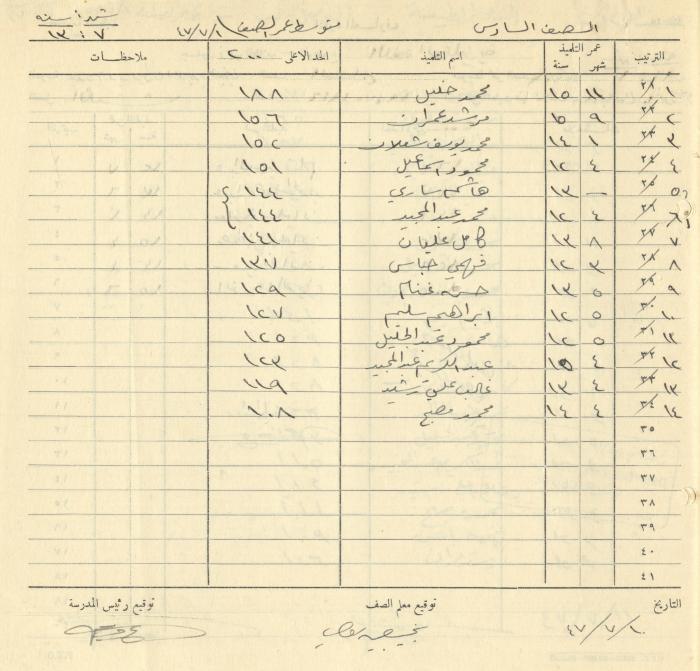 الصف السادس متوسط عمر الصف ٤٧/٧/١ شهر سنة
١٣ : ٧
الترتيب عمر التلميذ شهر سنة اسم التلميذ الحد الاعلى ٢٠٠ ملاحظات
١ ٢١ ١١ ١٥ محمد خليل ١٨٨
٢ ٢٢ ٩ ١٥ مرشد عمران ١٥٦
٣ ٢٣ ١ ١٤ محمد يوسف شعلان ١٥٢
٤ ٢٤ ٤ ١٢ محمود اسماعيل ١٥١
٥ ٢٥ – ١٣ هاشم ساري ١٤٤
٦ ٢٦ ٤ ١٢ محمد عبد المجيد ١٤٤
٧ ٢٧ ٨ ١٣ كامل عليان ١٤١
٨ ٢٨ ٣ ١٢ فهمي عباس ١٣٧
٩ ٢٩ ٥ ١٣ حسن غنام ١٢٩
١٠ ٣٠ ٥ ١٢ ابراهيم سليم ١٢٧
١١ ٣١ ٥ ١٢ محمود عبد الجليل ١٢٥
١٢ ٣٢ ٤ ١٥ عبد الكريم عبد المجيد ١٢٣
١٣ ٣٣ ٤ ١٣ غالب علي رشيد ١١٩
١٤ ٣٤ ٤ ١٤ محمد مصبح ١٠٨
٣٥
٣٦
٣٧
٣٨
٣٩
٤٠
٤١
التاريخ توقيع معلم الصف توقيع رئيس المدرسة
٤٧/٧/١٠